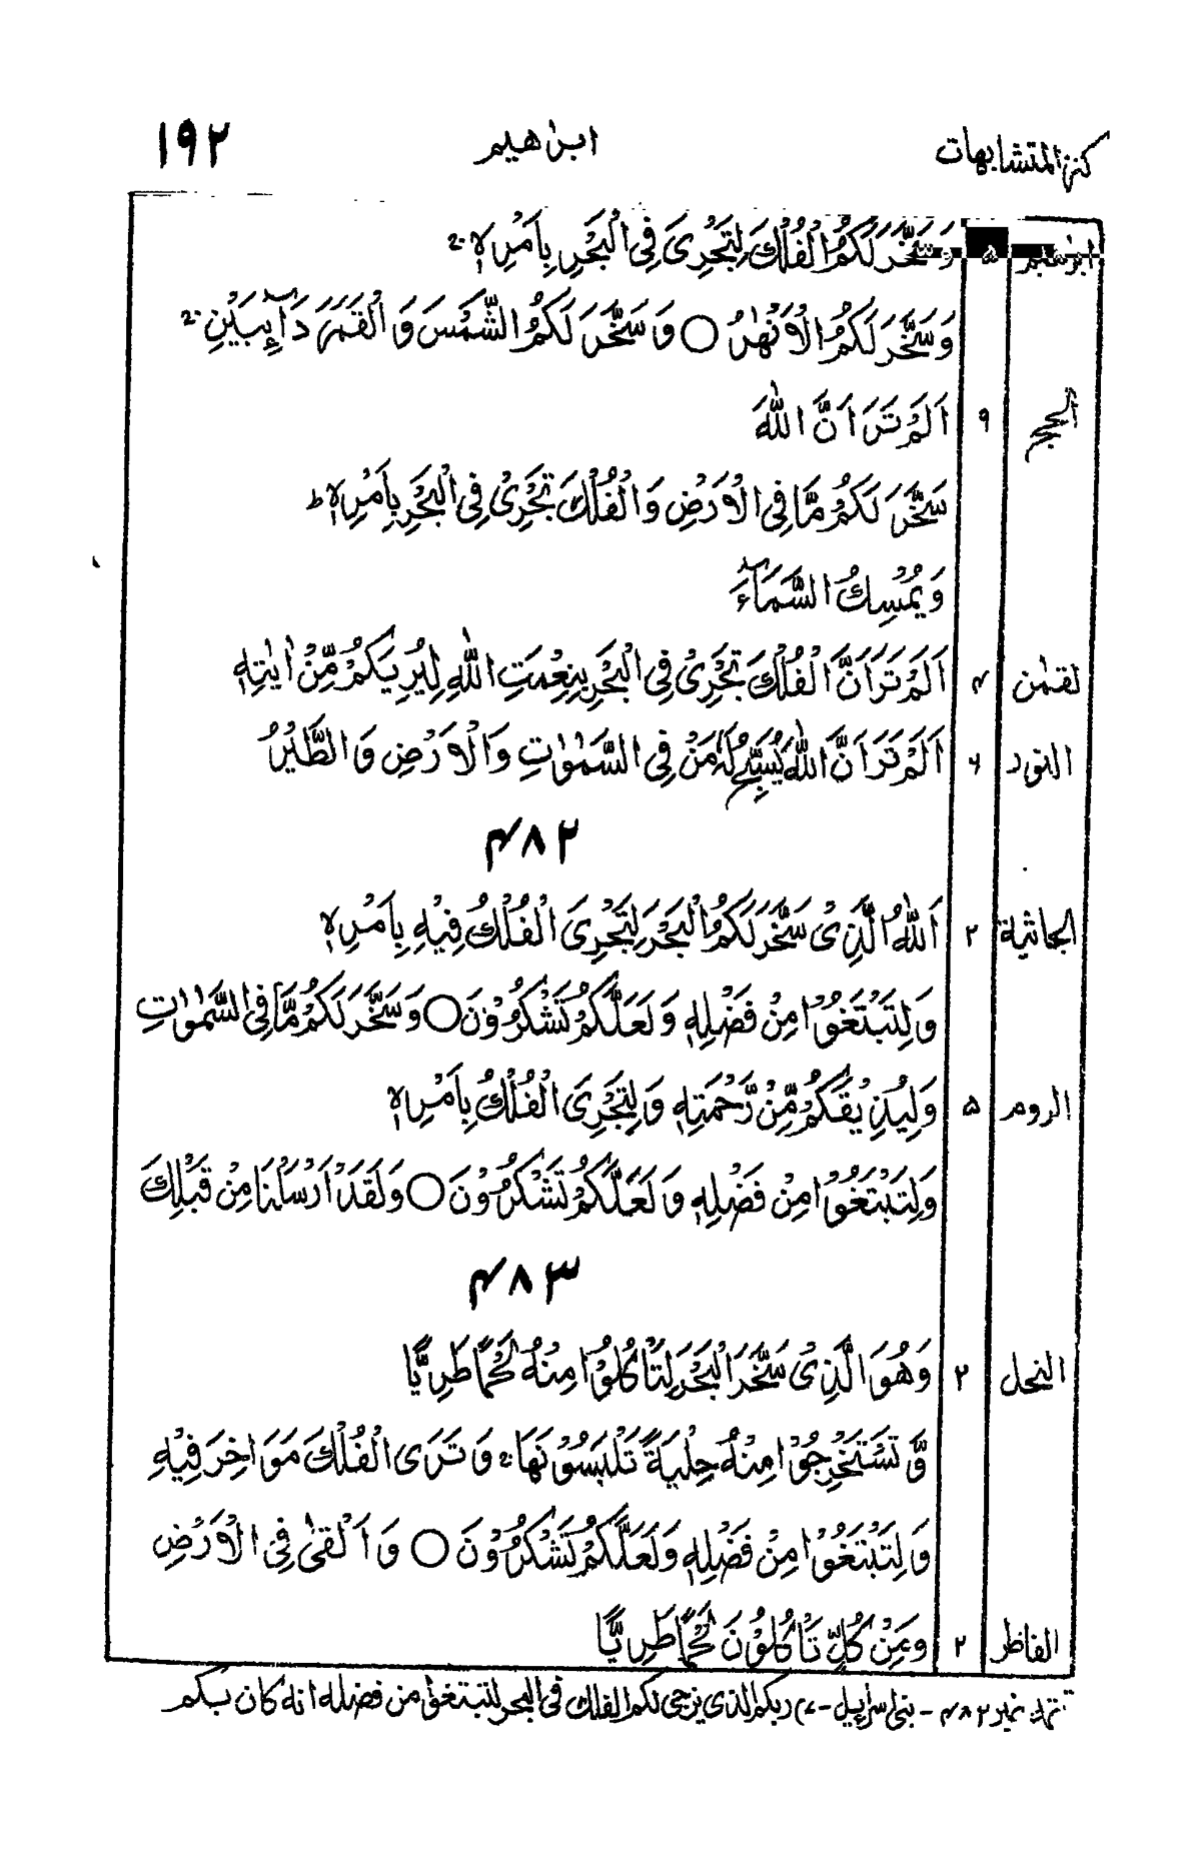 كنز المتشابهات ابرٰهيم ١٩٢
ابرٰهيم ۵ وَسَخَّرَ لَكُمُ الْفُلْكَ لِتَجْرِىَ فِى الْبَحْرِ بِاَمْرِهٖ ۚ
وَسَخَّرَ لَكُمُ الْاَنْهٰرَ ○ وَسَخَّرَ لَكُمُ الشَّمْسَ وَالْقَمَرَ دَآئِبَيْنِ ۚ
الحج ۹ اَلَمْ تَرَ اَنَّ اللّٰهَ
سَخَّرَ لَكُمْ مَّا فِى الْاَرْضِ وَالْفُلْكَ تَجْرِىْ فِى الْبَحْرِ بِاَمْرِهٖ ؕ
وَيُمْسِكُ السَّمَآءَ
لقمٰن ۴ اَلَمْ تَرَ اَنَّ الْفُلْكَ تَجْرِىْ فِى الْبَحْرِ بِنِعْمَتِ اللّٰهِ لِيُرِيَكُمْ مِّنْ اٰيٰتِهٖ
النور ۶ اَلَمْ تَرَ اَنَّ اللّٰهَ يُسَبِّحُ لَهٗ مَنْ فِى السَّمٰوٰتِ وَالْاَرْضِ وَالطَّيْرُ
۴۸۲
الجاثية ۲ اَللّٰهُ الَّذِىْ سَخَّرَ لَكُمُ الْبَحْرَ لِتَجْرِىَ الْفُلْكُ فِيْهِ بِاَمْرِهٖ
وَلِتَبْتَغُوْا مِنْ فَضْلِهٖ وَلَعَلَّكُمْ تَشْكُرُوْنَ ○ وَسَخَّرَ لَكُمْ مَّا فِى السَّمٰوٰتِ
الروم ۵ وَلِيُذِيْقَكُمْ مِّنْ رَّحْمَتِهٖ وَلِتَجْرِىَ الْفُلْكُ بِاَمْرِهٖ
وَلِتَبْتَغُوْا مِنْ فَضْلِهٖ وَلَعَلَّكُمْ تَشْكُرُوْنَ ○ وَلَقَدْ اَرْسَلْنَا مِنْ قَبْلِكَ
۴۸۳
النحل ۲ وَهُوَ الَّذِىْ سَخَّرَ الْبَحْرَ لِتَاْكُلُوْا مِنْهُ لَحْمًا طَرِيًّا
وَّتَسْتَخْرِجُوْا مِنْهُ حِلْيَةً تَلْبَسُوْنَهَا ۚ وَتَرَى الْفُلْكَ مَوَاخِرَ فِيْهِ
وَلِتَبْتَغُوْا مِنْ فَضْلِهٖ وَلَعَلَّكُمْ تَشْكُرُوْنَ ○ وَاَلْقٰى فِى الْاَرْضِ
الفاطر ۲ وَمِنْ كُلٍّ تَاْكُلُوْنَ لَحْمًا طَرِيًّا
تتمه نمبر ۴۸۲ - بنى اسرائيل - ۷ ربكم الذى يزجى لكم الفلك فى البحر لتبتغوا من فضله انه كان بكم